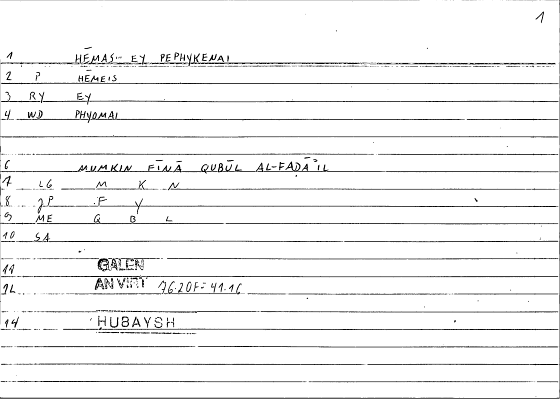 1
1 HĒMAS-- EY PEPHYKENAI
2 P HĒMEIS
3 RY EY
4 WD PHYOMAI
6 MUMKIN FĪNĀ QUBŪL AL-FAḌĀʾIL
7 LG M K N
8 JP F Y
9 ME Q B L
10 SA
11 GALEN
12 AN VIRT 76:20F = 41.16
14 ḤUBAYSH